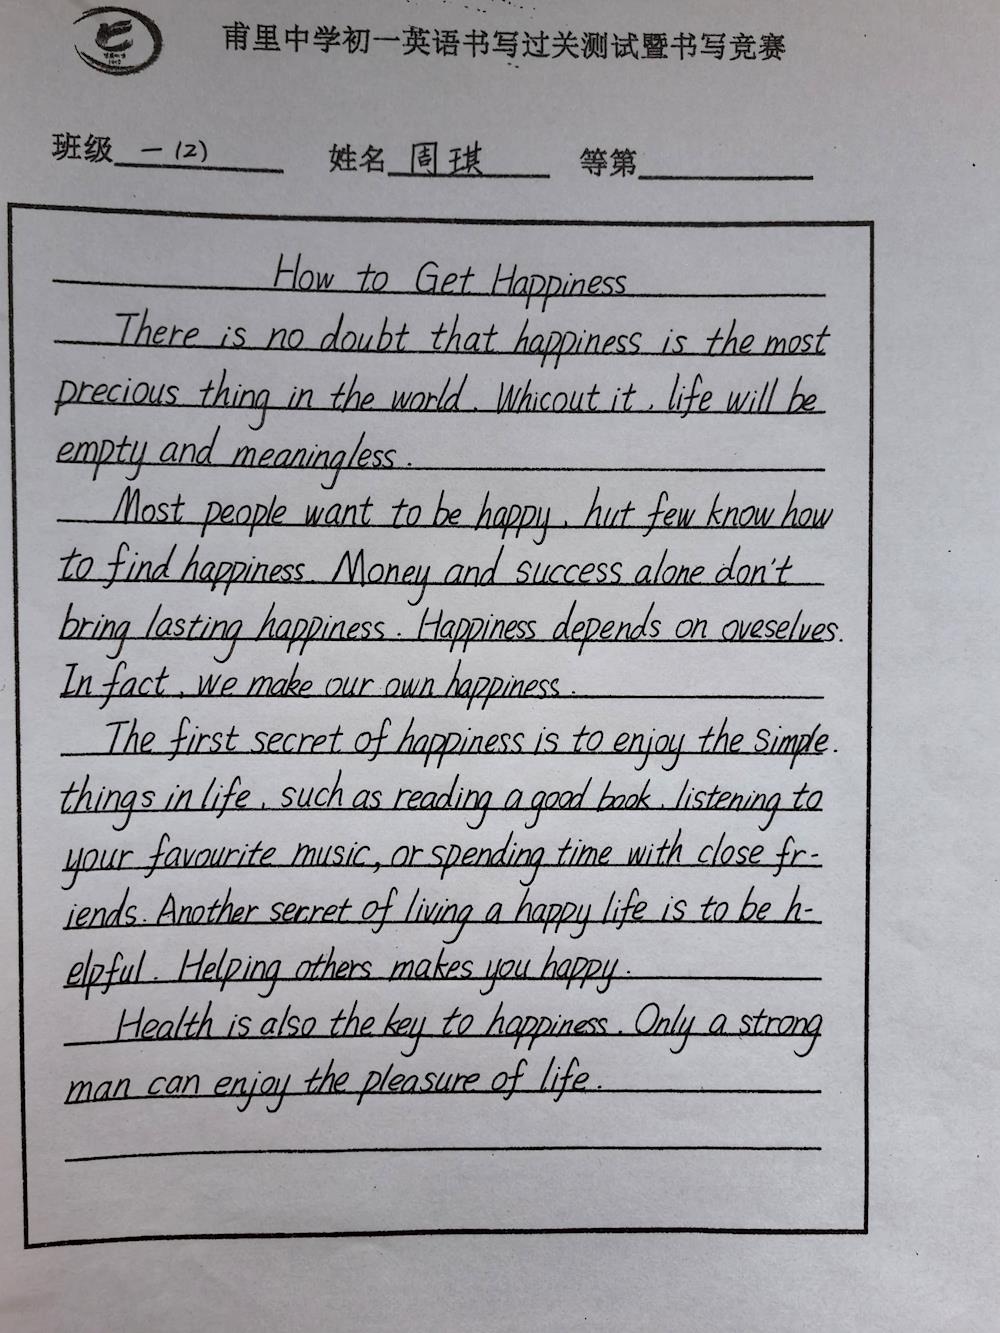 甫里中学初一英语书写过关测试暨书写竞赛
班级 一(2) 姓名 周琪 等第
How to Get Happiness
There is no doubt that happiness is the most
precious thing in the world. Whicout it, life will be
empty and meaningless.
Most people want to be happy, hut few know how
to find happiness. Money and success alone don't
bring lasting happiness. Happiness depends on oveselves.
In fact, we make our own happiness.
The first secret of happiness is to enjoy the simple.
things in life, such as reading a good book, listening to
your favourite music, or spending time with close fr-
iends. Another secret of living a happy life is to be h-
elpful. Helping others makes you happy.
Health is also the key to happiness. Only a strong
man can enjoy the pleasure of life.